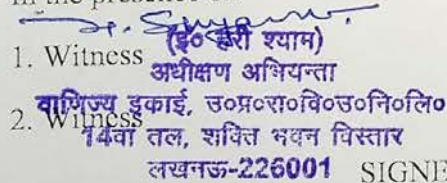 1. Witness
(इ० हरी श्याम)
अधीक्षण अभियन्ता
वाणिज्य इकाई, उ०प्र०रा०वि०उ०नि०लि०
2. Witness
14वां तल, शक्ति भवन विस्तार
लखनऊ-226001 SIGNE